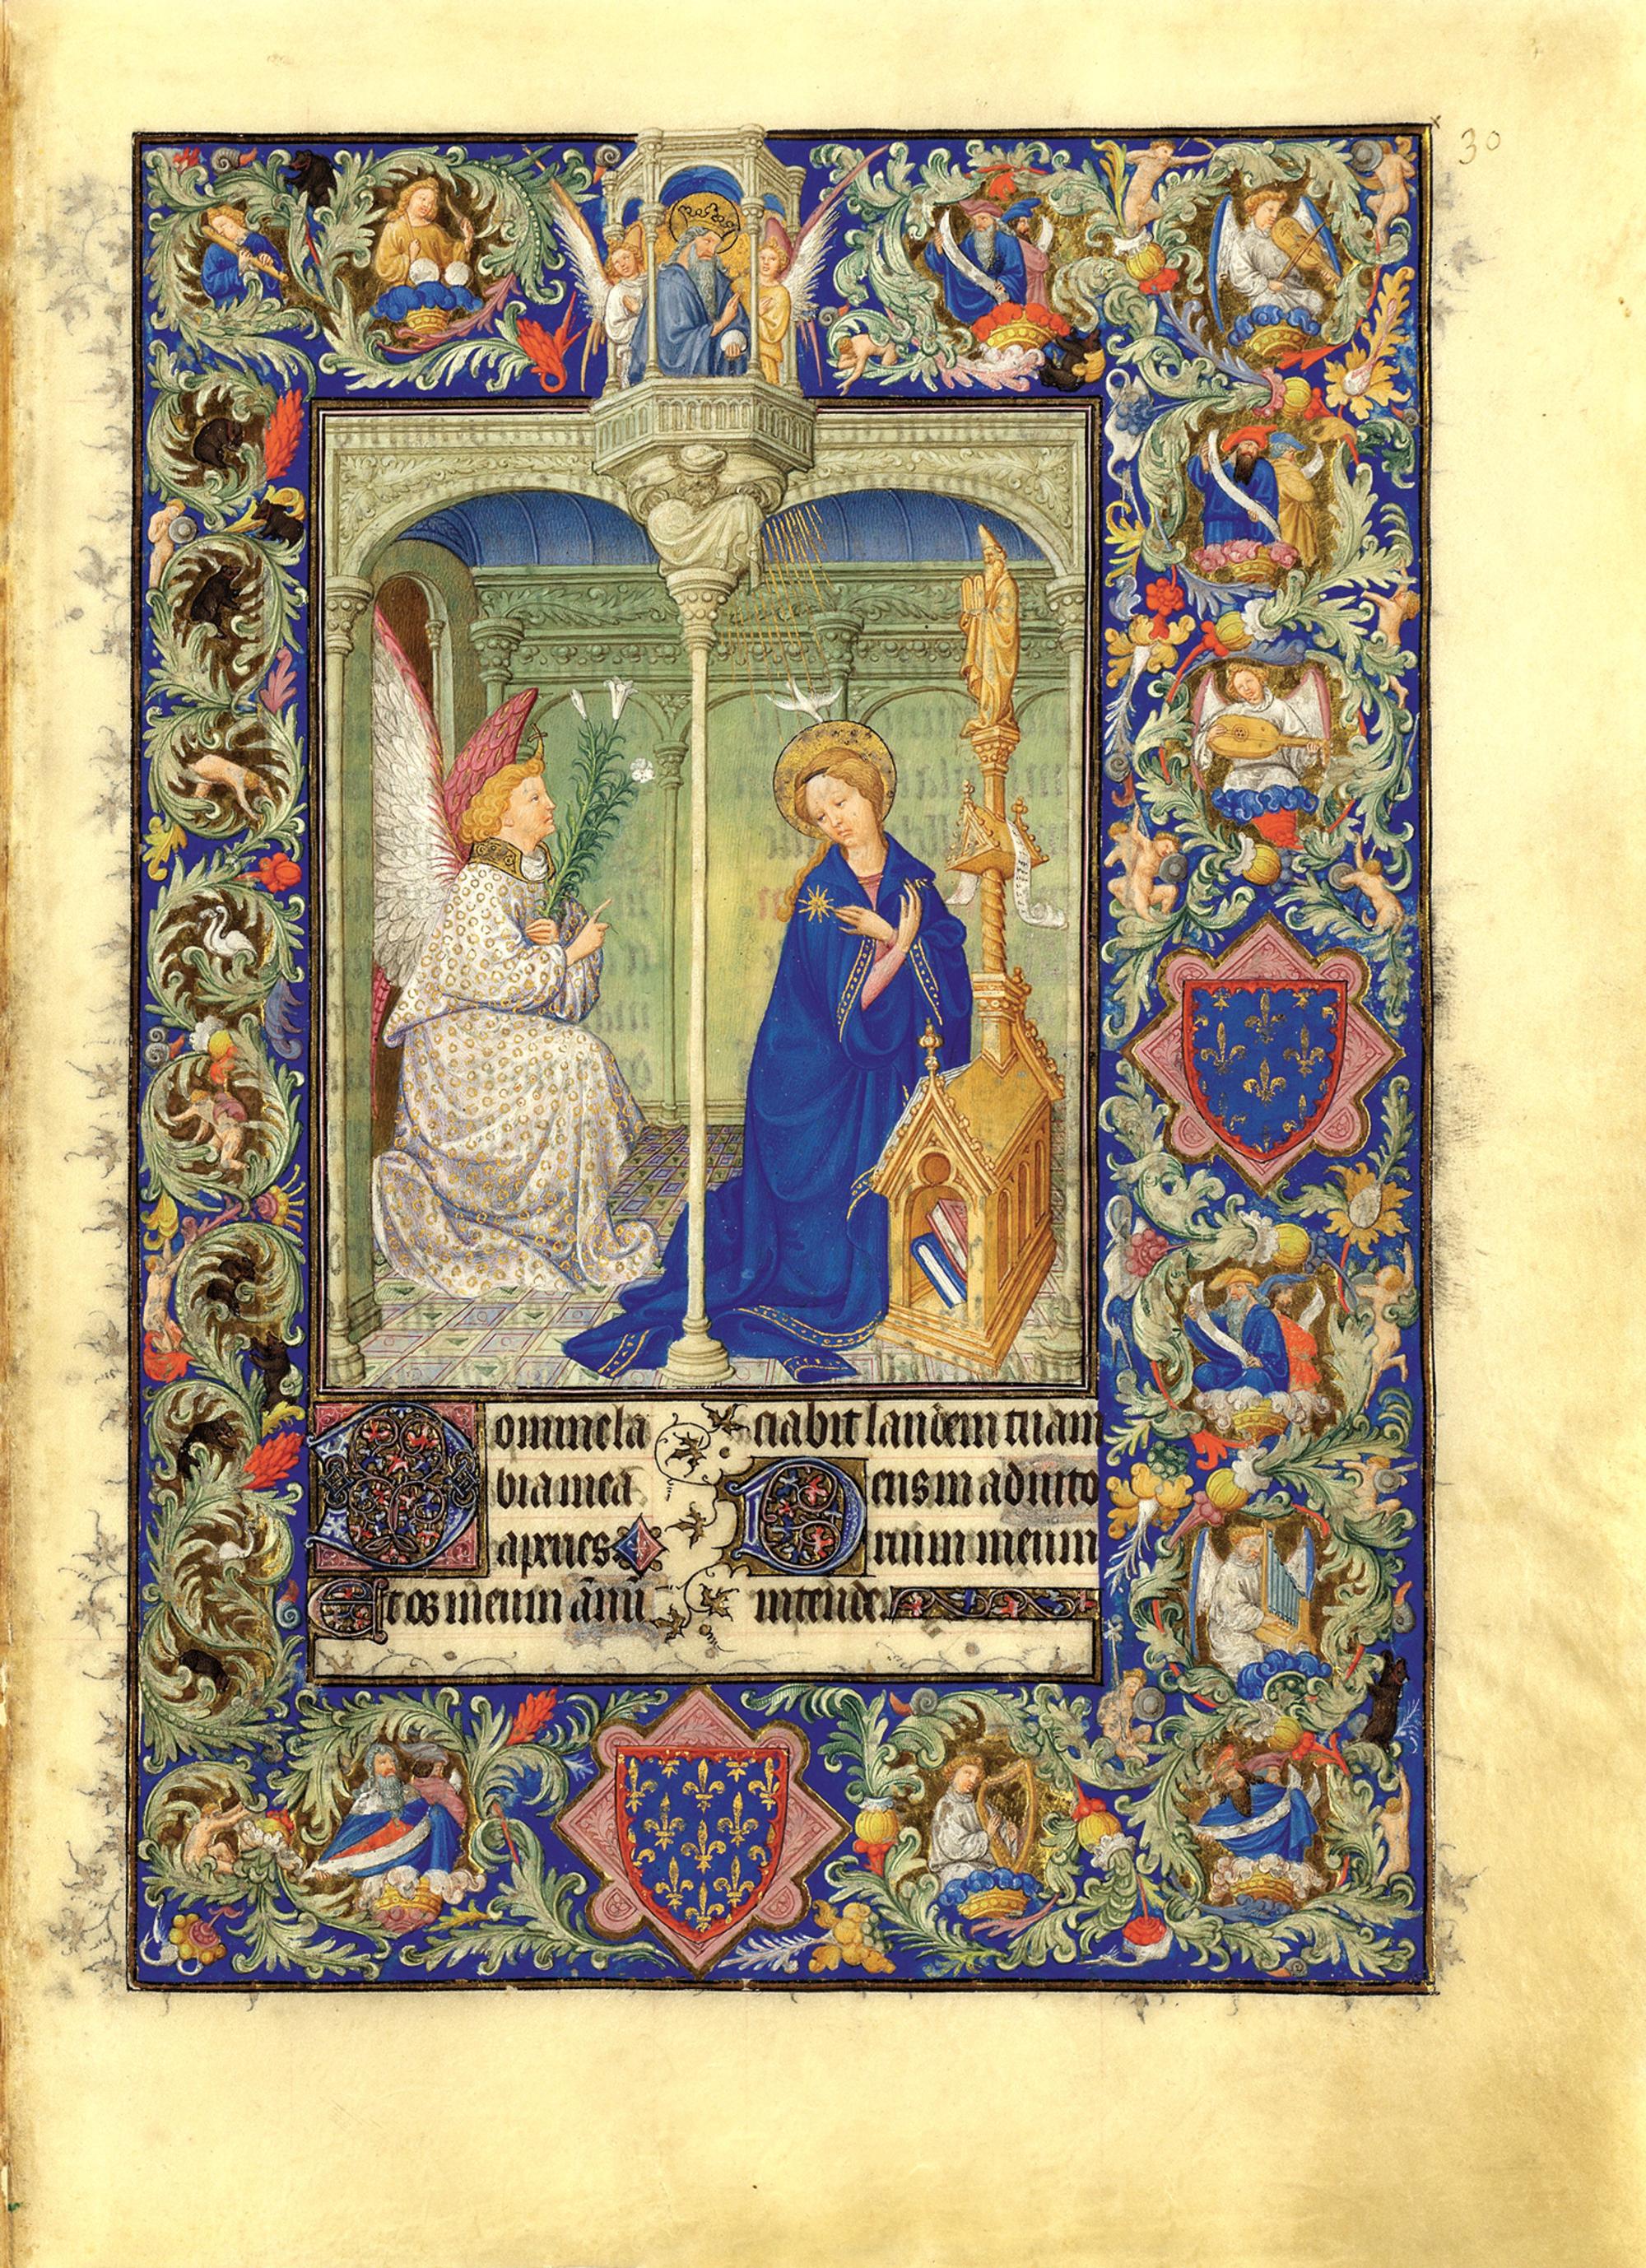 30
Domine la
bia mea
aperies
Et os meum ãnũ
ciabit laudem tuam
Deus in adiuto
rium meum
intende.